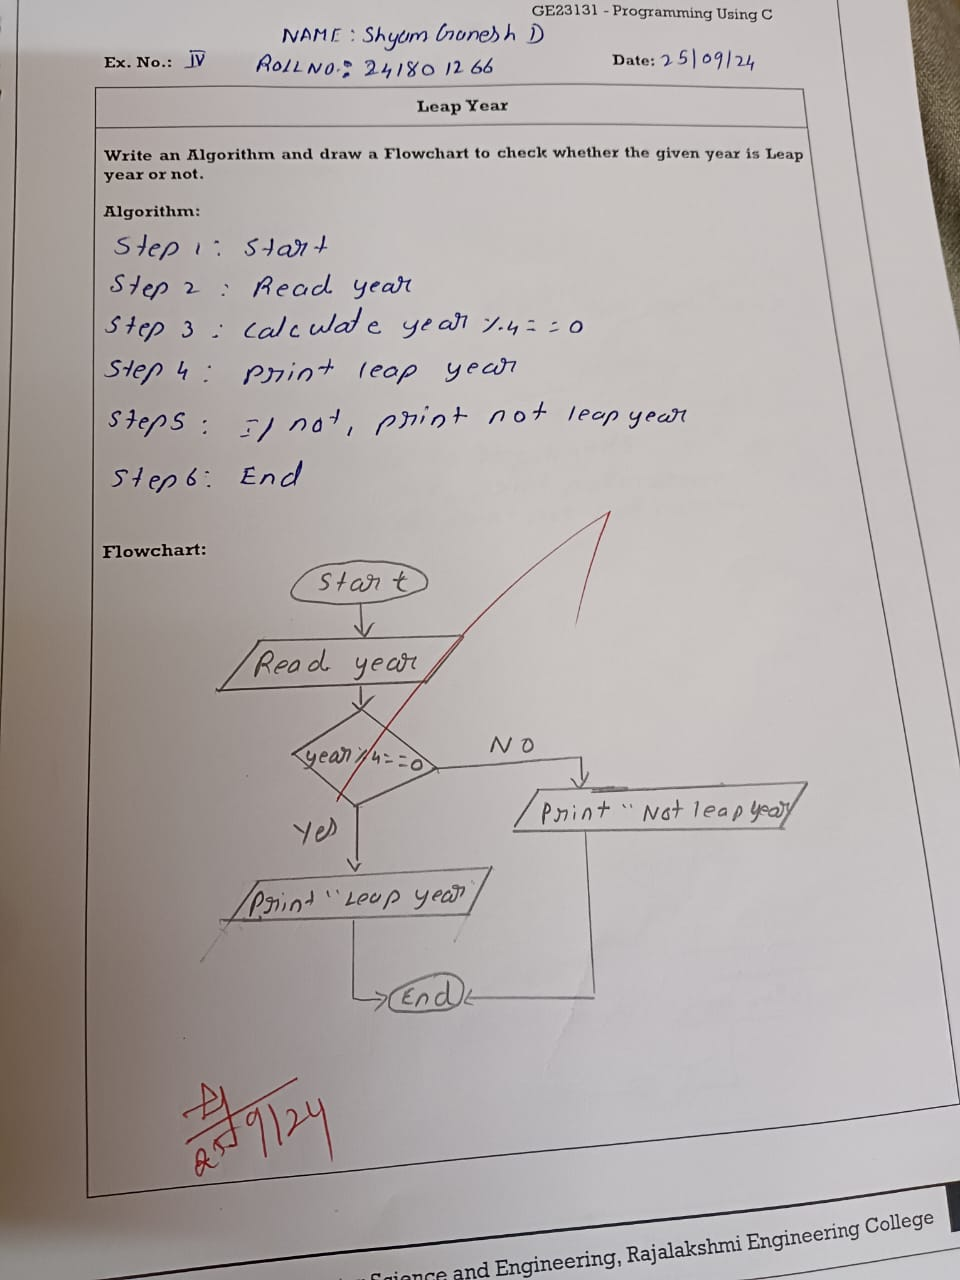 GE23131 - Programming Using C
NAME : Shyam Ganesh D
Ex. No.: IV ROLL NO.: 241801266 Date: 25/09/24
Leap Year
Write an Algorithm and draw a Flowchart to check whether the given year is Leap
year or not.
Algorithm:
Step 1: Start
Step 2 : Read year
Step 3 : Calculate year %4==0
Step 4 : print leap year
Step5 : If not, print not leap year
Step6: End
Flowchart:
Start
Read year
year%4==0
NO
Print "Not leap year
Yes
Print "Leap year"
End
25/9/24
Science and Engineering, Rajalakshmi Engineering College